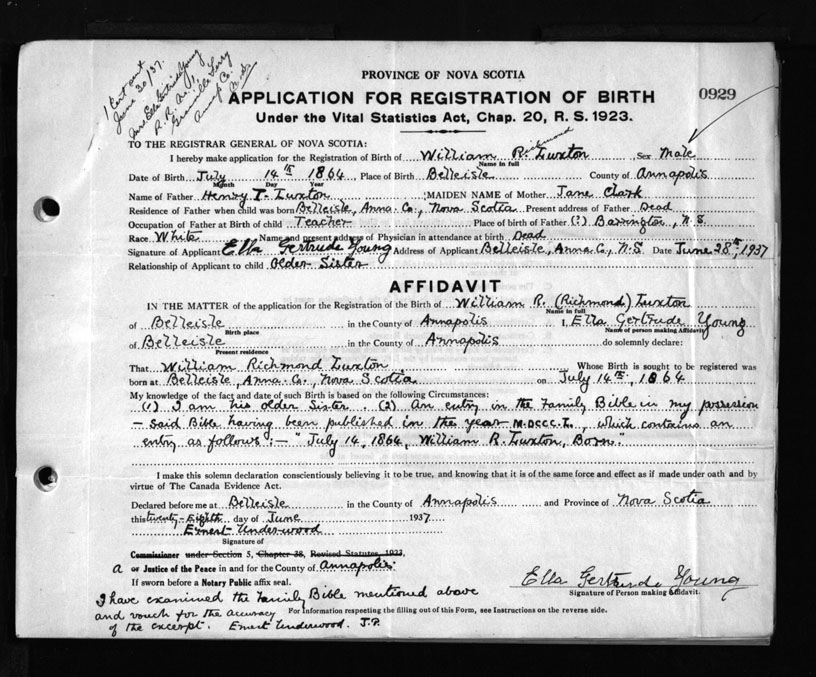 1 Cert out
June 30/37.
Mrs Ella Gertrude Young
R. R. No. 1,
Granville Ferry
Anna. Co.
N.S.
PROVINCE OF NOVA SCOTIA
APPLICATION FOR REGISTRATION OF BIRTH
0929
Under the Vital Statistics Act, Chap. 20, R. S. 1923.
TO THE REGISTRAR GENERAL OF NOVA SCOTIA:
Richmond
I hereby make application for the Registration of Birth of William R. Luxton Sex Male
Name in full
Date of Birth July 14th 1864 Place of Birth Belleisle County of Annapolis
Month Day Year
Name of Father Henry T. Luxton MAIDEN NAME of Mother Jane Clark
Residence of Father when child was born Belleisle, Anna. Co., Nova Scotia Present address of Father Dead
Occupation of Father at Birth of child Teacher Place of birth of Father (?) Barrington, N.S.
Race White Name and present address of Physician in attendance at birth Dead
Signature of Applicant Ella Gertrude Young Address of Applicant Belleisle, Anna Co., N.S. Date June 28th, 1937
Relationship of Applicant to child Older Sister
AFFIDAVIT
IN THE MATTER of the application for the Registration of the Birth of William R. (Richmond) Luxton
Name in full
of Belleisle in the County of Annapolis I, Ella Gertrude Young
Birth place Name of person making Affidavit
of Belleisle in the County of Annapolis do solemnly declare:
Present residence
That William Richmond Luxton Whose Birth is sought to be registered was
born at Belleisle, Anna. Co., Nova Scotia on July 14th, 1864
My knowledge of the fact and date of such Birth is based on the following Circumstances:
(1) I am his older Sister. (2) An entry in the Family Bible in my possession
— said Bible having been published in the year M.DCCC.L., which contains an
entry as follows:— "July 14, 1864, William R. Luxton, Born."
I make this solemn declaration conscientiously believing it to be true, and knowing that it is of the same force and effect as if made under oath and by
virtue of The Canada Evidence Act.
Declared before me at Belleisle in the County of Annapolis and Province of Nova Scotia
this twenty-Eighth day of June 1937
Ernest Underwood
Signature of
Commissioner under Section 5, Chapter 38, Revised Statutes, 1923,
a or Justice of the Peace in and for the County of Annapolis.
If sworn before a Notary Public affix seal.
Ella Gertrude Young
Signature of Person making Affidavit.
I have examined the Family Bible mentioned above
and vouch for the accuracy
For Information respecting the filling out of this Form, see Instructions on the reverse side.
of the excerpt. Ernest Underwood. J.P.